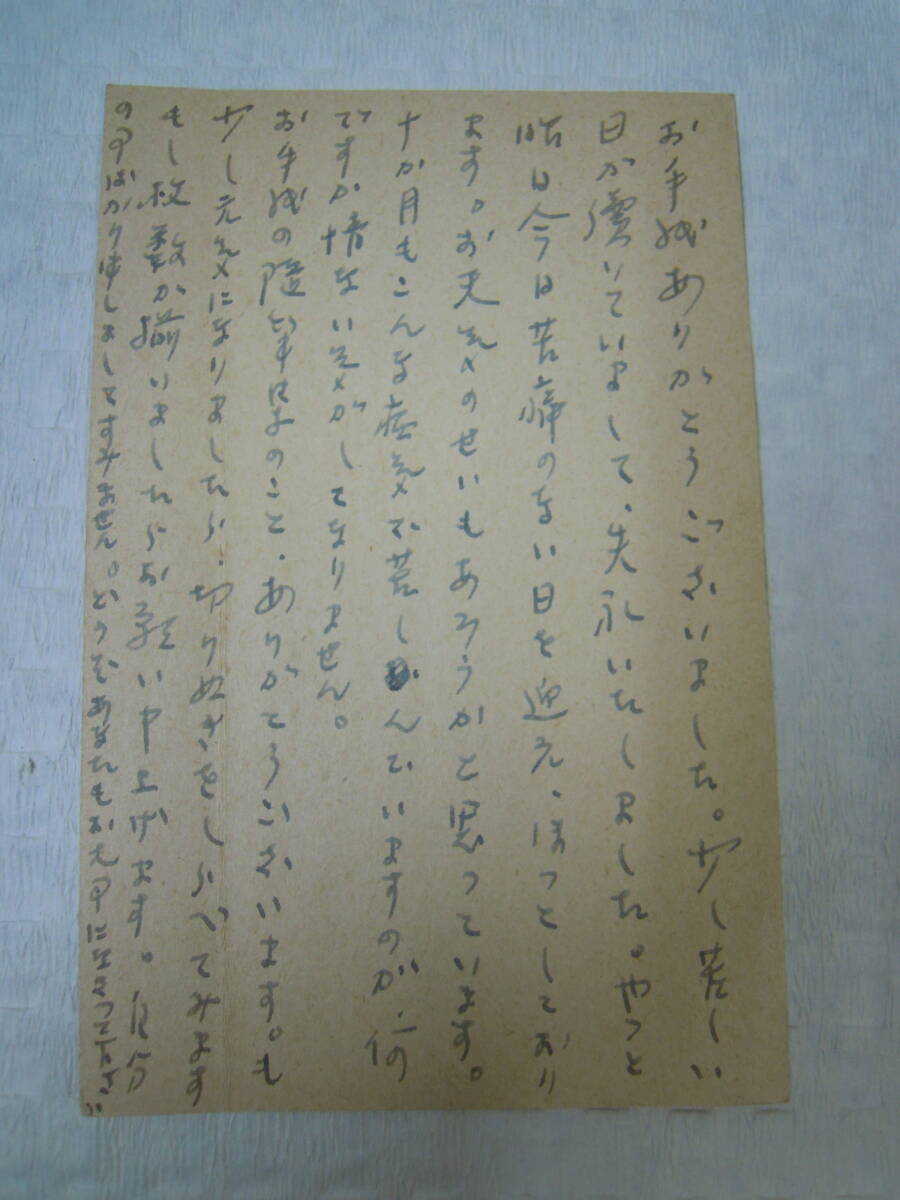 お手紙ありがとうございました。少し苦しい
日が續いていまして、失礼いたしました。やっと
昨日今日苦痛のない日を迎え、ほっとしており
ます。お天気のせいもあろうかと思っています。
十か月もこんな病気で苦しんでいますのが、何
ですか情ない気がしてなりません。
お手紙の随筆のこと、ありがとうございます。も
少し元気になりましたら、切りぬきをしらべてみます
もし枚数が揃いましたらお願い申上げます。自分
の事ばかり申しましてすみません。どうぞあなたもお大事になさって下さい